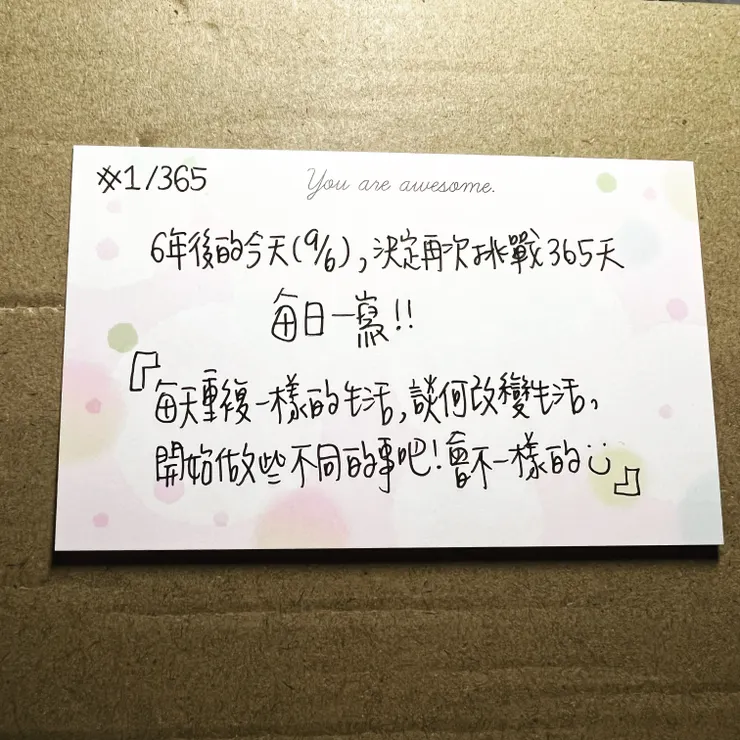 #1/365
You are awesome.
6年後的今天(9/6),決定再次挑戰365天
每日一寫!!
『每天重複一樣的生活,談何改變生活,
開始做些不同的事吧!會不一樣的:)』